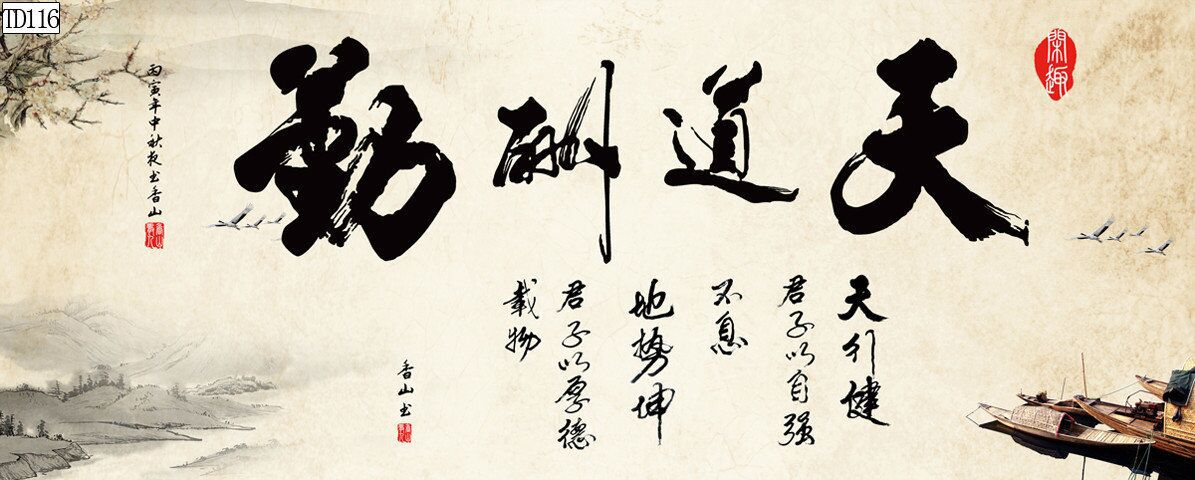 TD116
閑趣
天道酬勤
丙寅年中秋夜书香山
天行健
君子以自强
不息
地势坤
君子以厚德
载物
香山书